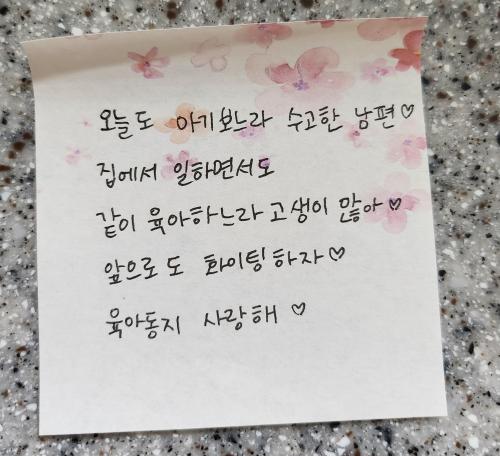 오늘도 아기보느라 수고한 남편♡
집에서 일하면서도
같이 육아하느라 고생이 많아♡
앞으로도 화이팅하자♡
육아동지 사랑해 ♡